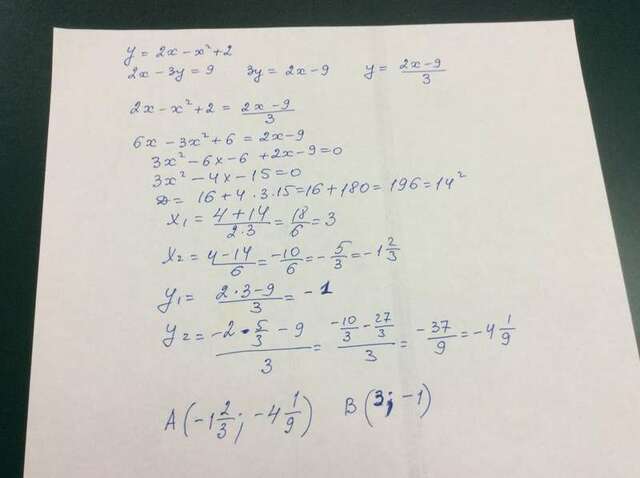 y = 2x - x² + 2
2x - 3y = 9 3y = 2x - 9 y = (2x - 9)/3
2x - x² + 2 = (2x - 9)/3
6x - 3x² + 6 = 2x - 9
3x² - 6x - 6 + 2x - 9 = 0
3x² - 4x - 15 = 0
D = 16 + 4 · 3 · 15 = 16 + 180 = 196 = 14²
x₁ = (4 + 14)/(2·3) = 18/6 = 3
x₂ = (4 - 14)/6 = -10/6 = -5/3 = -1 2/3
y₁ = (2·3 - 9)/3 = -1
y₂ = (-2·5/3 - 9)/3 = (-10/3 - 27/3)/3 = -37/9 = -4 1/9
A(-1 2/3; -4 1/9) B(3; -1)